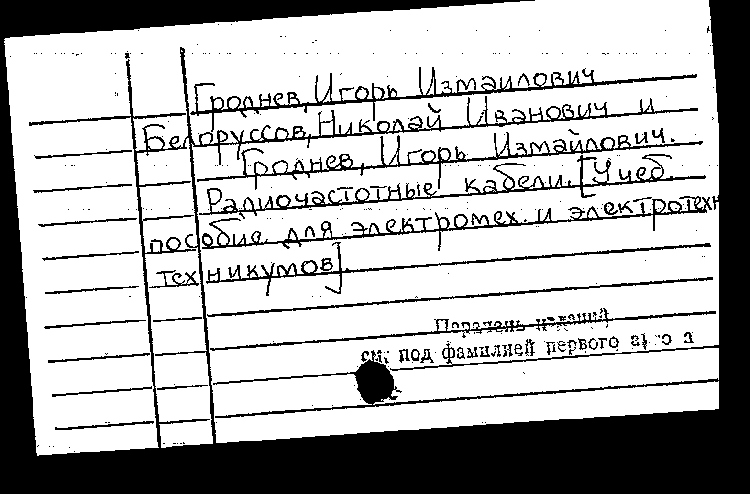 Гроднев, Игорь Измаилович
Белоруссов, Николай Иванович и
Гроднев, Игорь Измайлович.
Радиочастотные кабели. [Учеб.
пособие для электромех. и электротехн
техникумов].
Перечень изданий
см. под фамилией первого